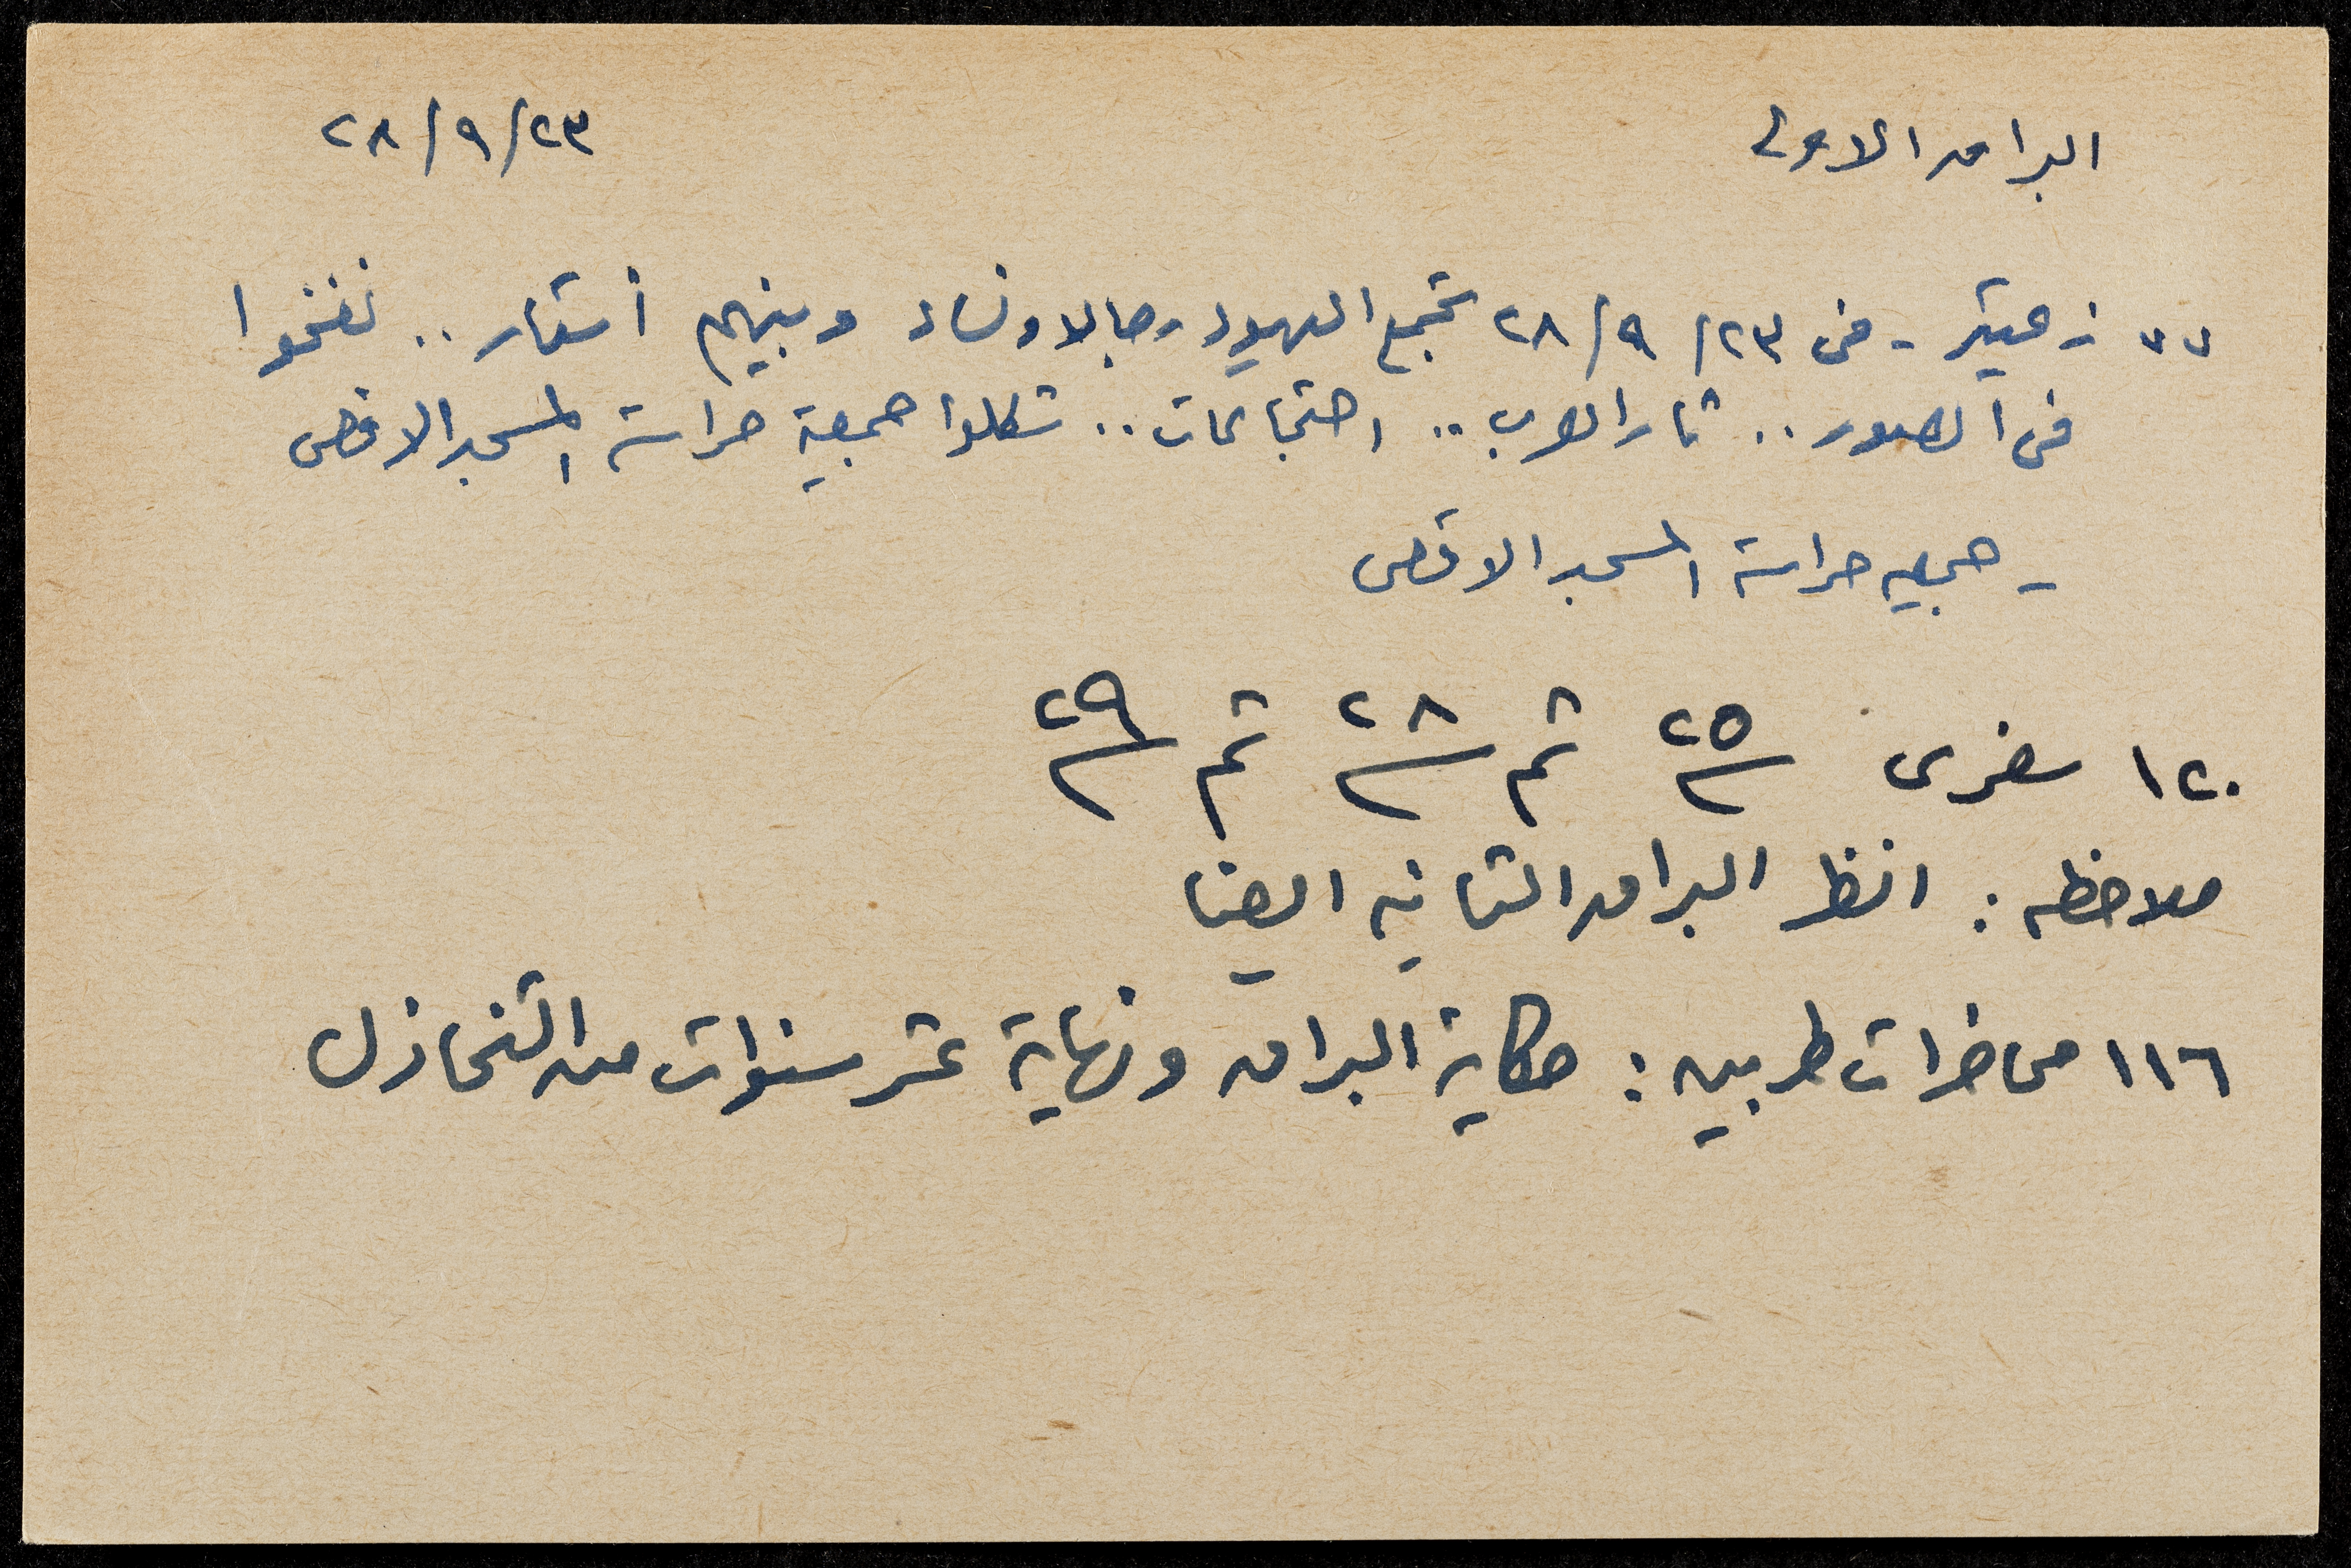 البراق الاولى ٢٣/٩/٢٨
٧٧ زعيتر - فى ٢٣/٩/٢٨ تجمع اليهود رجالا ونساء وبينهم أشقار .. نفخوا
فى الصور .. ثار العرب .. احتجاجات .. شكلوا جمعية حراسة المسجد الاقصى
- جمعيه حراسة المسجد الاقصى
١٢٠ سفرى ٢٥ ثم ٢٨ ثم ٢٩
ملاحظه : انظر البراق الثانيه ايضا
١١٦ محاضرات طربين : حكاية البراق ونهاية عشر سنوات من التخاذل